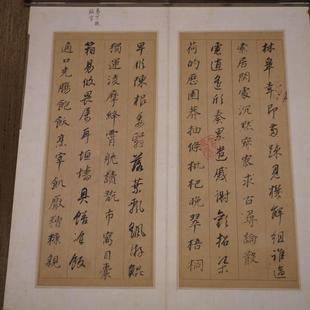 林皋幸即兩疏見機解組誰逼
索居閒處沉默寂寥求古尋論散
慮逍遙欣奏累遣慼謝歡招渠
荷的歷園莽抽條枇杷晚翠梧桐
早凋陳根委翳落葉飄颻游鵾
獨運凌摩絳霄耽讀翫市寓目囊
箱易輶攸畏屬耳垣墻具膳餐飯
適口充腸飽飫烹宰飢厭糟糠親